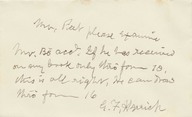 Mr. Peet please examine
Mr. B's acct. If he has received
on any book only thro' form 13,
this is all right, He can draw
thro' form 16
E. F. Herrick